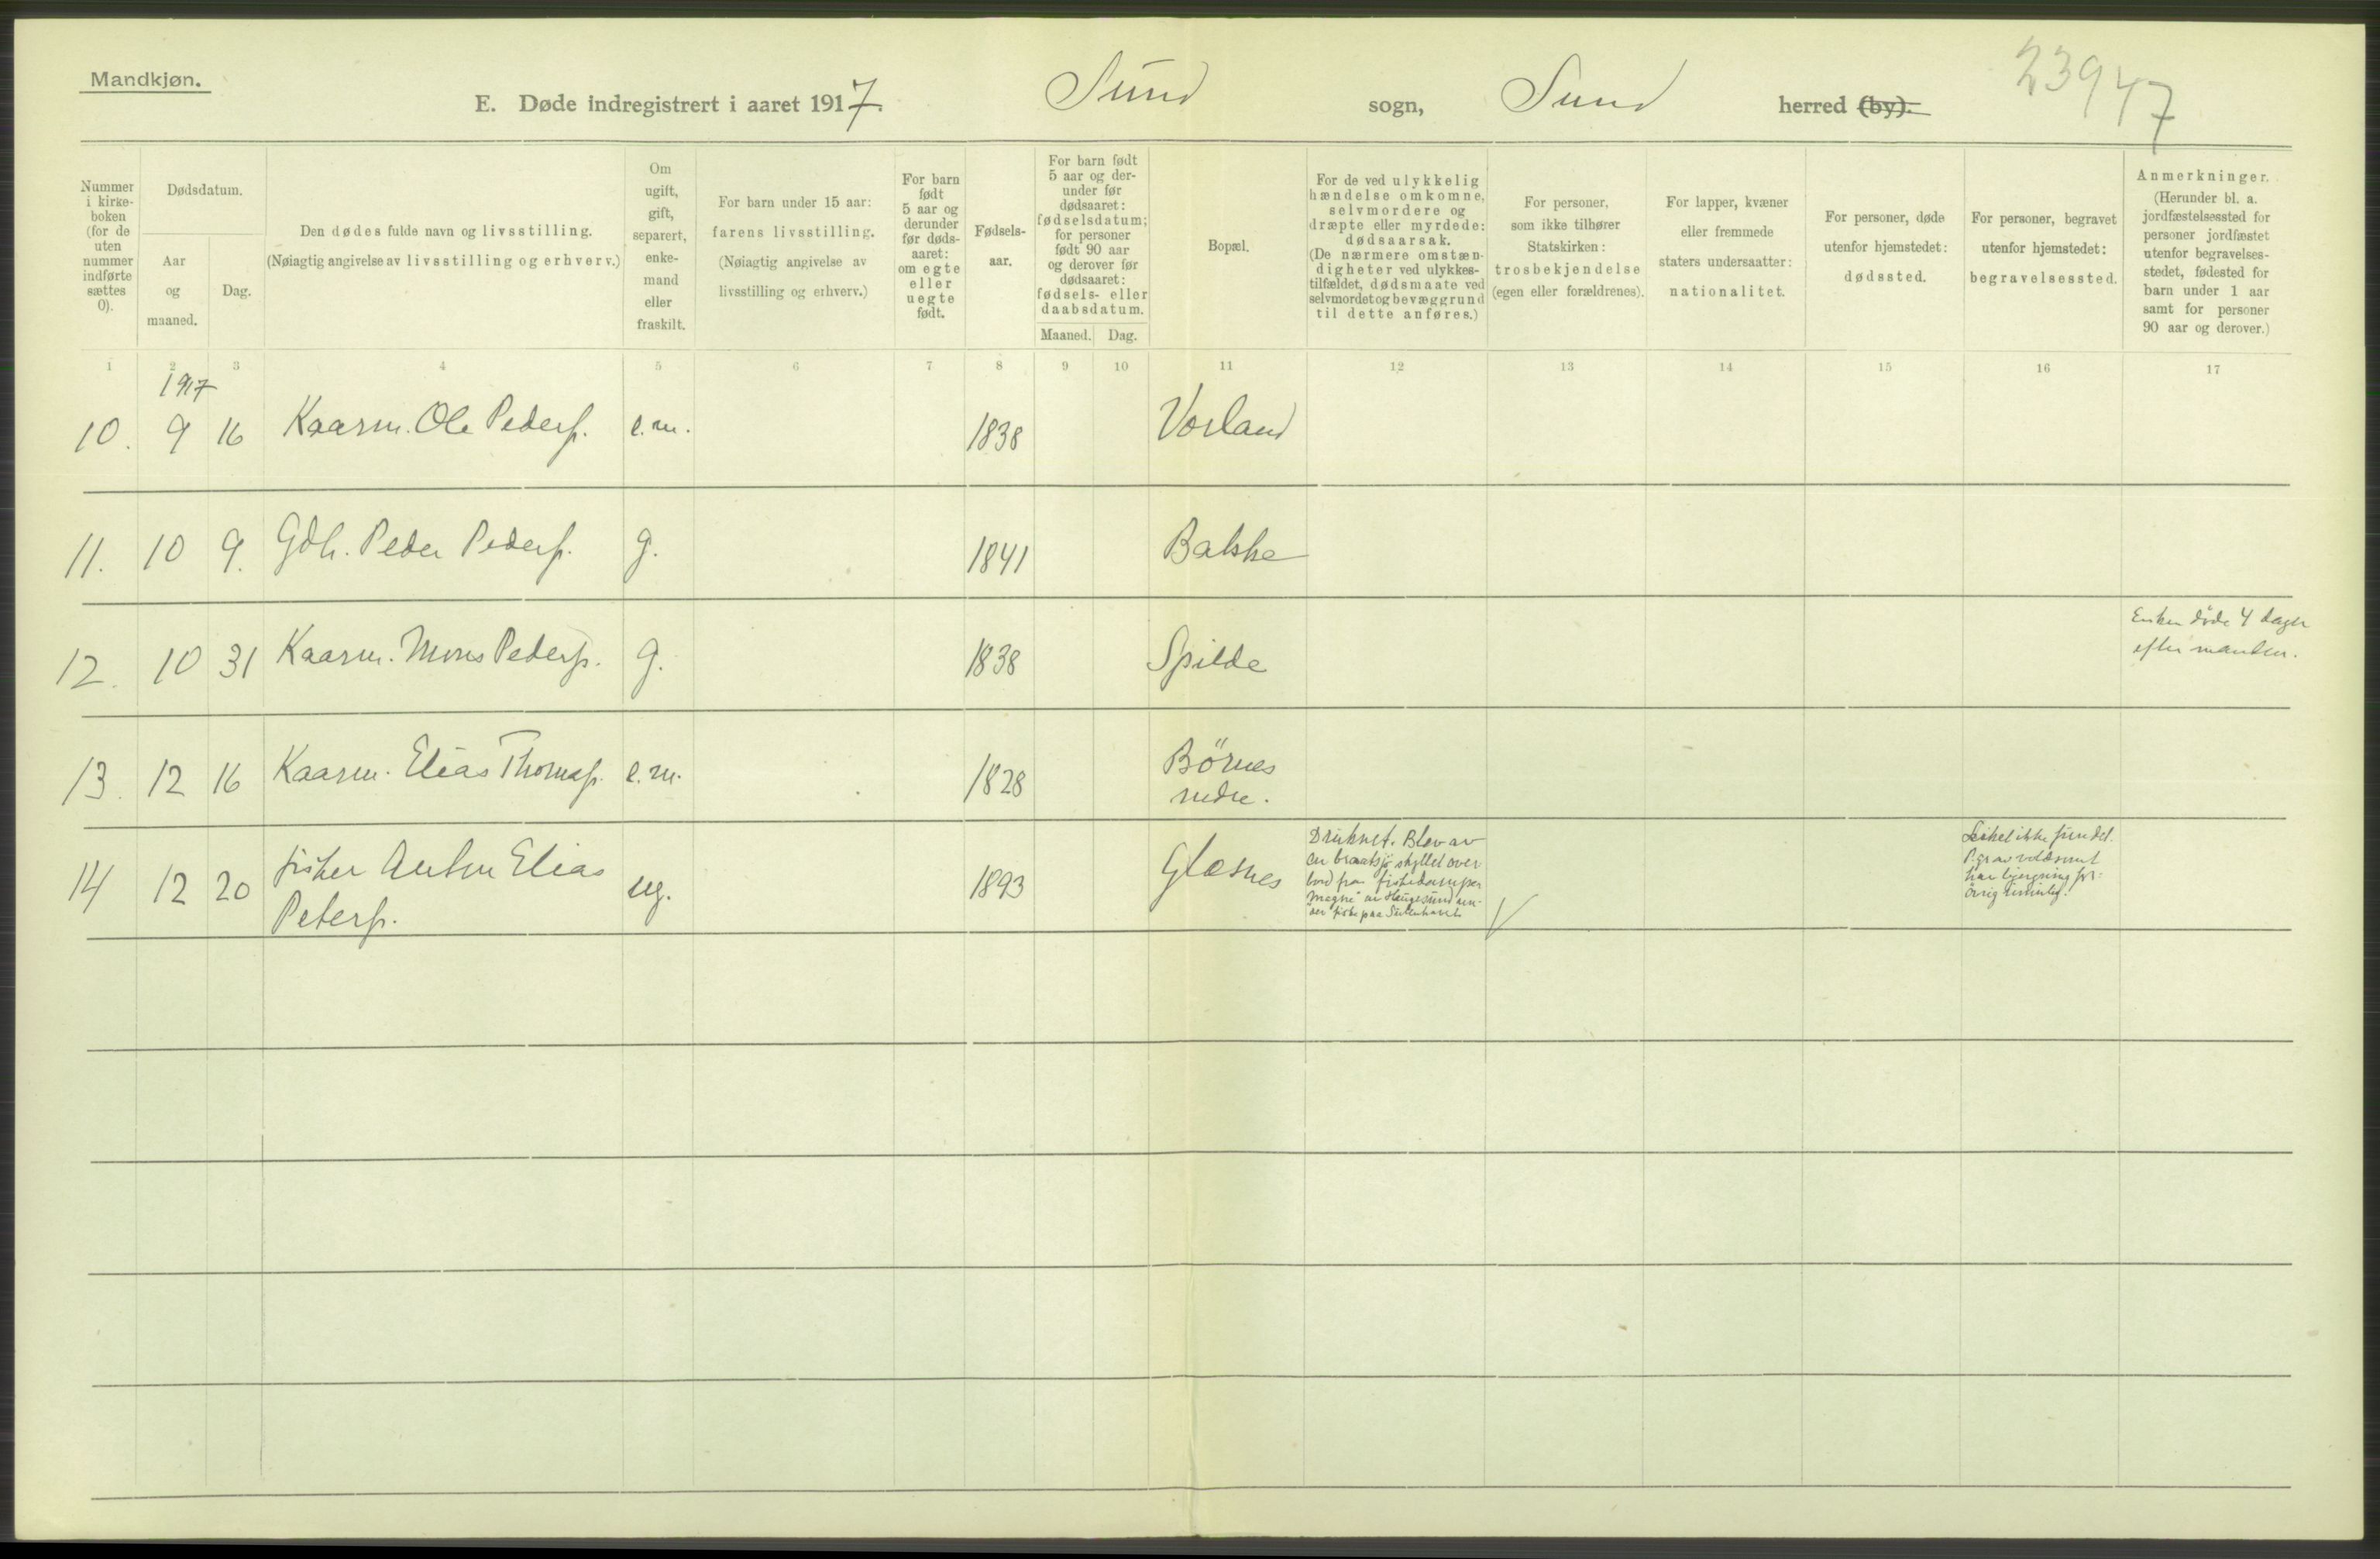 Mandkjøn.
E. Døde indregistrert i aaret 1917. Sund sogn, Sund herred (by).
23947
Nummer i kirke-boken (for de uten nummer indførte sættes 0).
Dødsdatum.
Aar og maaned.
Dag.
Den dødes fulde navn og livsstilling.
(Nøiagtig angivelse av livsstilling og erhverv.)
Om ugift, gift, separert, enke-mand eller fraskilt.
For barn under 15 aar: farens livsstilling.
(Nøiagtig angivelse av livsstilling og erhverv.)
For barn født 5 aar og derunder før døds-aaret: om egte eller uegte født.
Fødsels-aar.
For barn født 5 aar og der-under før dødsaaret: fødselsdatum; for personer født 90 aar og derover før dødsaaret: fødsels- eller daabsdatum.
Maaned. Dag.
Bopæl.
For de ved ulykkelig hændelse omkomne, selvmordere og dræpte eller myrdede: dødsaarsak.
(De nærmere omstæn-digheter ved ulykkes-tilfældet, dødsmaate ved selvmordet og bevæggrund til dette anføres.)
For personer, som ikke tilhører Statskirken: trosbekjendelse (egen eller forældrenes).
For lapper, kvæner eller fremmede staters undersaatter: nationalitet.
For personer, døde utenfor hjemstedet: dødssted.
For personer, begravet utenfor hjemstedet: begravelsessted.
Anmerkninger.
(Herunder bl. a. jordfæstelsessted for personer jordfæstet utenfor begravelses-stedet, fødested for barn under 1 aar samt for personer 90 aar og derover.)
1 2 3 4 5 6 7 8 9 10 11 12 13 14 15 16 17
1917
10. 9 16 Kaarm. Ole Peders. e.m. 1838 Vorland
11. 10 9. Gdb. Peder Peders. g. 1841 Bakke
12. 10 31 Kaarm. Mons Peders. g. 1838 Spilde
Enken døde 4 dager
efter manden.
13. 12 16 Kaarm. Elias Thomas. e.m. 1828 Börnes
nedre.
14 12 20 fisker Anton Elias ug. 1893 Glesnes
Peters.
Druknet. Blev av
en braatsjø skyllet over
bord fra fiskedamper
"Magne" av Haugesund un-
der fiske paa
Liket ikke fundet.
P.gr.av voldsomt
hav bjergning for-
övrig umulig.